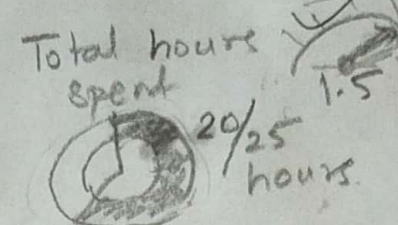 Total hours
spent
20/25
hours.
1.5